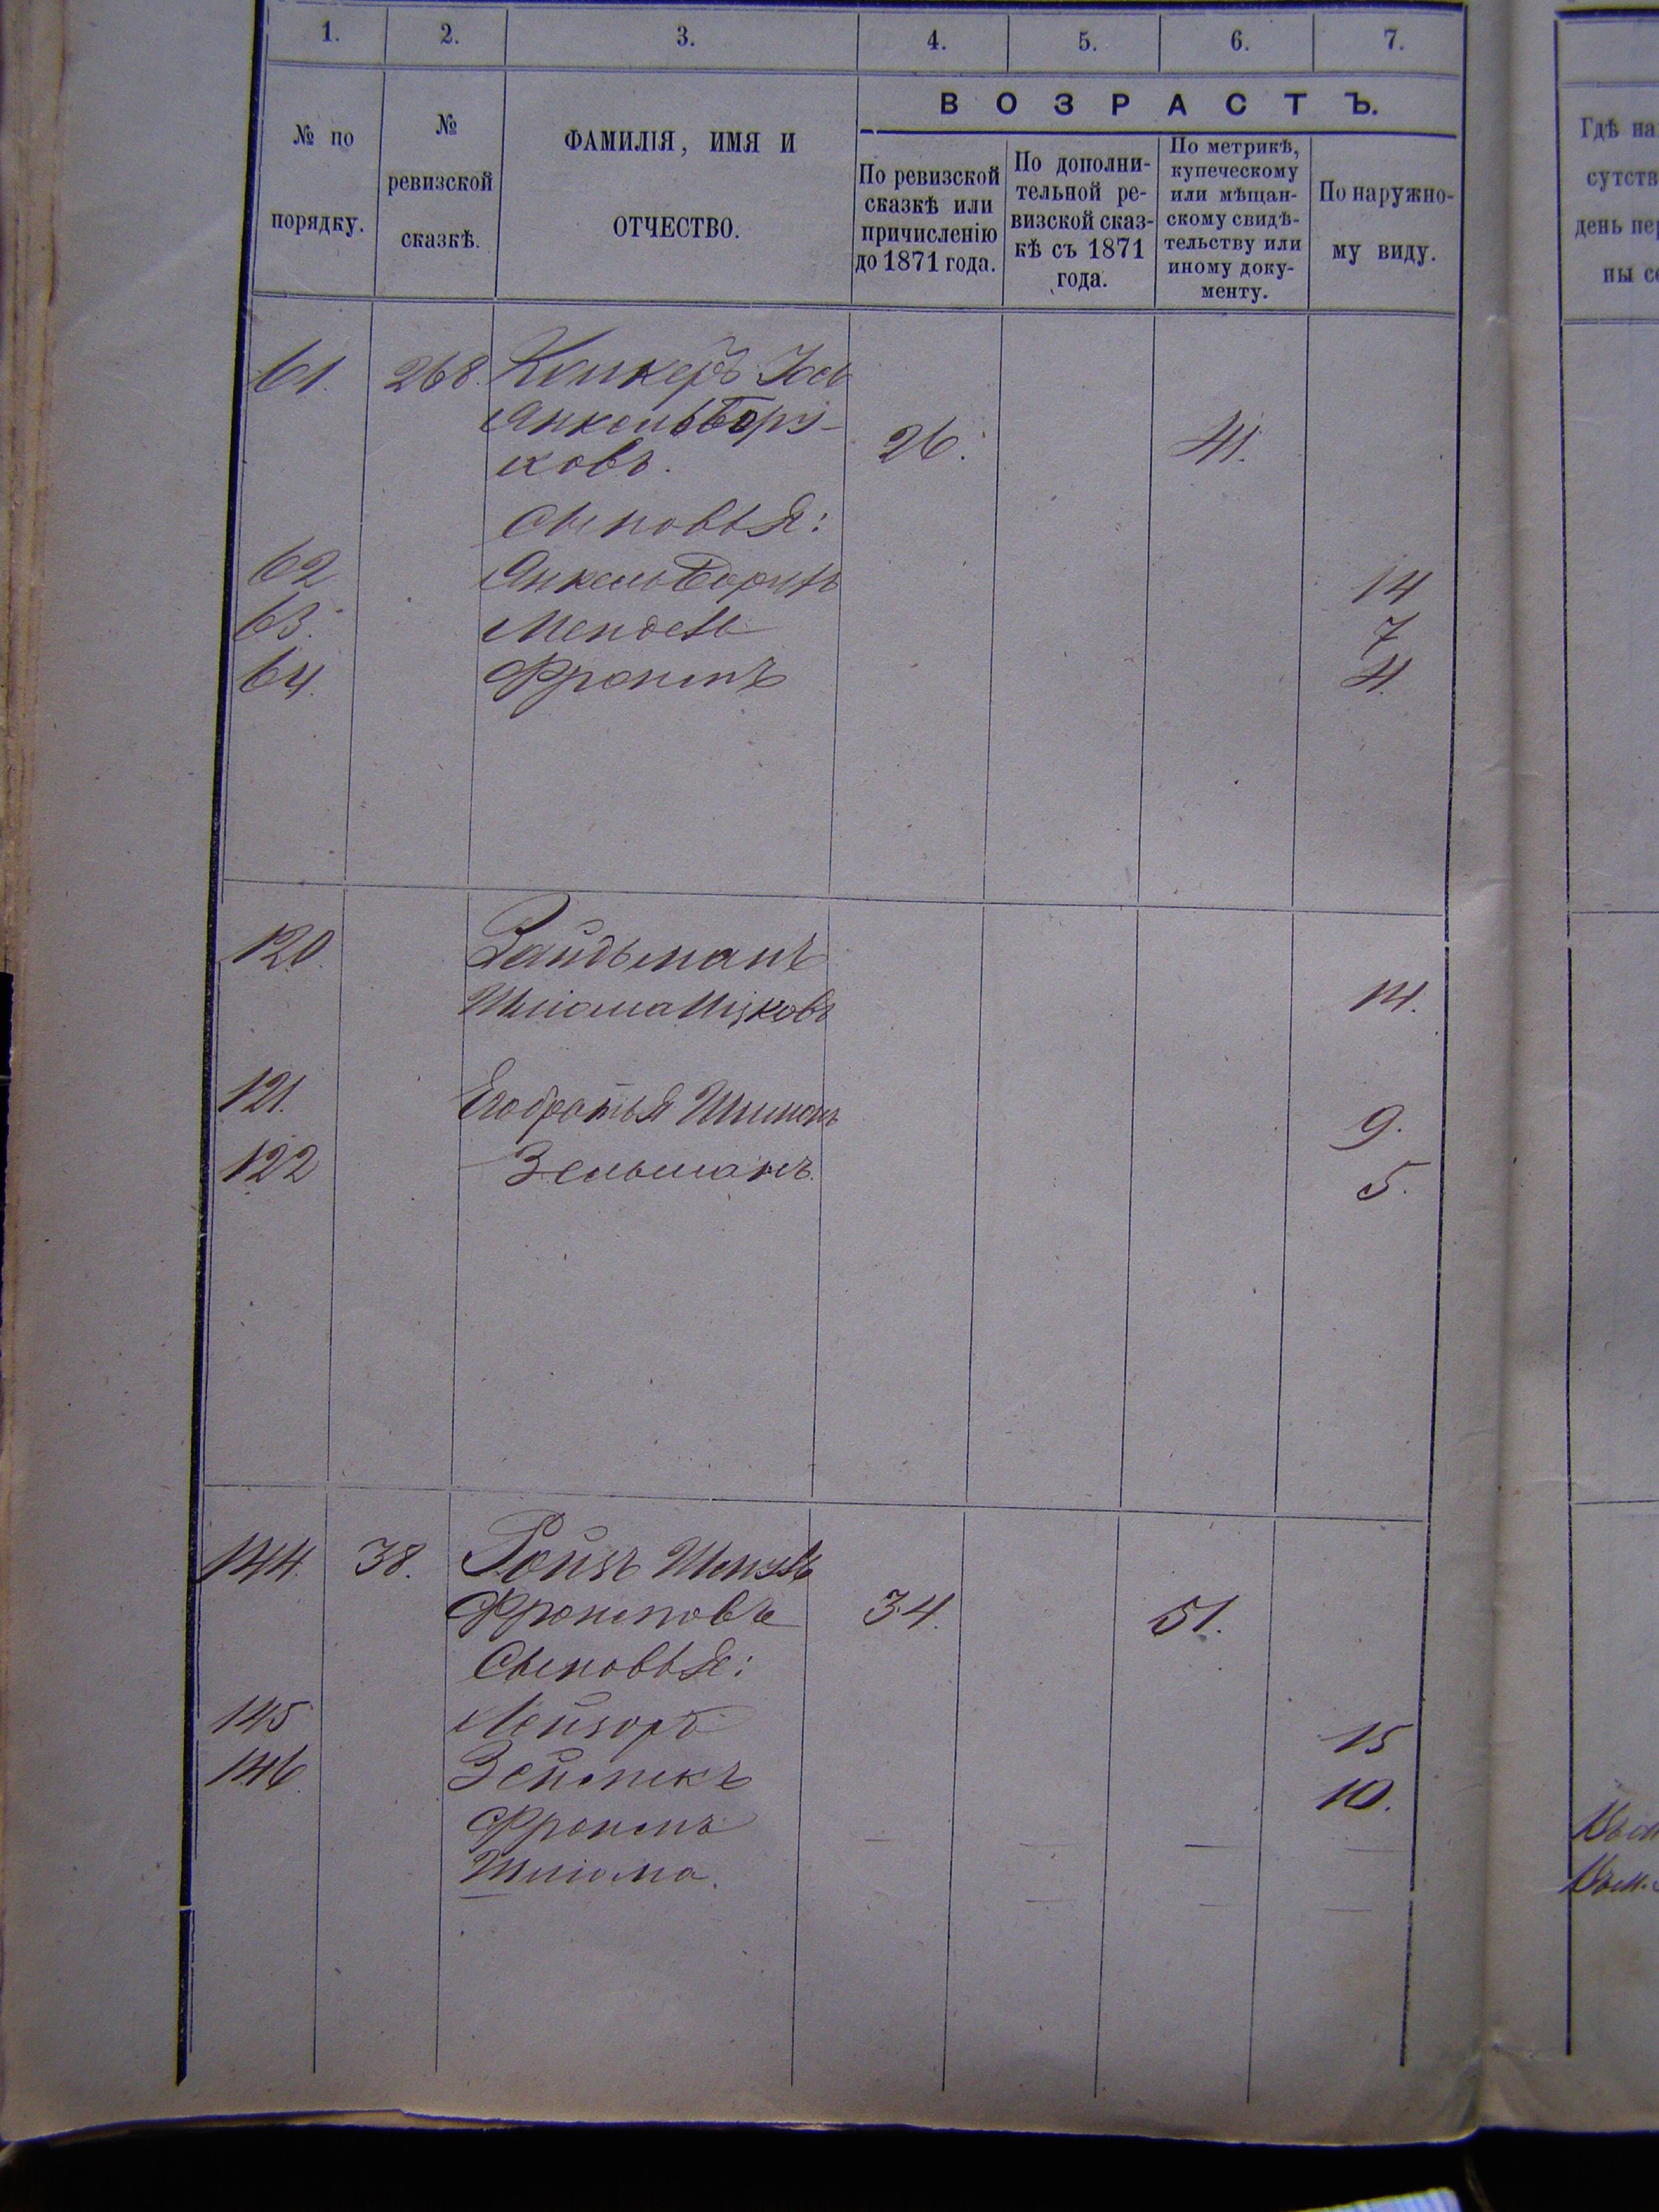 1. 2. 3. 4. 5. 6. 7.
№ по порядку.
№ ревизской сказкѣ.
ФАМИЛІЯ, ИМЯ И ОТЧЕСТВО.
ВОЗРАСТЪ.
По ревизской сказкѣ или причисленію до 1871 года.
По дополни-
тельной ре-
визской сказ-
кѣ съ 1871
года.
По метрикѣ,
купеческому
или мѣщан-
скому свидѣ-
тельству или
иному доку-
менту.
По наружно-
му виду.
Гдѣ на
сутств
день пер
ны се
61. 268. Іось
Янкель Бору-
ховъ. 26. 41.
Сыновья:
62 Янкель Борухъ 14
63. Мендель 7
64. Фроимъ 4.
120. Зайдьманъ
Шліома Ицковъ 14.
121. Его братья Шимонъ 9.
122 Зельманъ. 5.
144. 38. Ройзъ
Фроимовъ 34. 51.
Сыновья:
145 Лейзоръ 15
146. 10.
Фроимъ
Шліома.